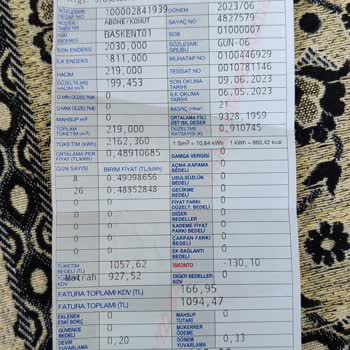 SÖZLEŞME HESAP NO 100002841939 DÖNEM 2023/06
ABONE/KONUT SAYAÇ NO 4827579
BASKENT01 SOB 01000007
SON ENDEKS 2030,000 SÖZLEŞME GRUBU GUN-06
İLK ENDEKS 1811,000 MUHATAP NO 0100446929
HACİM 219,000 TESİSAT NO 0010781146
DÜZELTİLMİŞ HACİM (m³) 199,453 SON OKUMA TARİHİ 09.06.2023
Q MİN DÜZELTME 0 İLK OKUMA TARİHİ 06.05.2023
Q MAX DÜZELTME 0 BASINÇ (mbar) 21
MAHSUP m³ 0 ORTALAMA FİİLİ ÜST ISIL DEĞER 9328,1959
TOPLAM TÜKETİM (m³) 219,000 DÜZELTME KATSAYISI (K) 0,910745
TÜKETİM (kWh) 2162,360 1 Sm³ = 10,64 kWh 1 kWh = 860,42 kcal
ORTALAMA PER. FİYAT (TL/kWh) 0,48910685 DAMGA VERGİSİ 0
GÜN SAYISI BİRİM FİYAT (TL/kWh) AÇMA-KAPAMA BEDELİ 0
8 0,49098656 USULSÜZLÜK BEDELİ 0
26 0,48852848 GECİKME BEDELİ 0
FİYAT FARKI DÜZELT. BEDELİ 0
DİĞER BEDELLER 0
KADEME FİYAT FARKI BEDELİ 0
ÇARPAN FARKI BEDELİ 0
EK BAĞLANTI BEDELİ 0
TÜKETİM BEDELİ (TL) 1057,62 İSKONTO -130,10
Matrah 927,52 DİĞER BEDELLER KDV 0
FATURA TOPLAMI KDV (TL) 166,95
FATURA TOPLAMI (TL) 1094,47
EKLENEN ESKİ BORÇ 0 MAHSUP TUTARI 0
GÜVENCE BEDELİ 0 MÜKERRER ÖDEME 0
DEVİR YUVARLAMA 0,20 DÖNEM YUVARLAMA 0,33